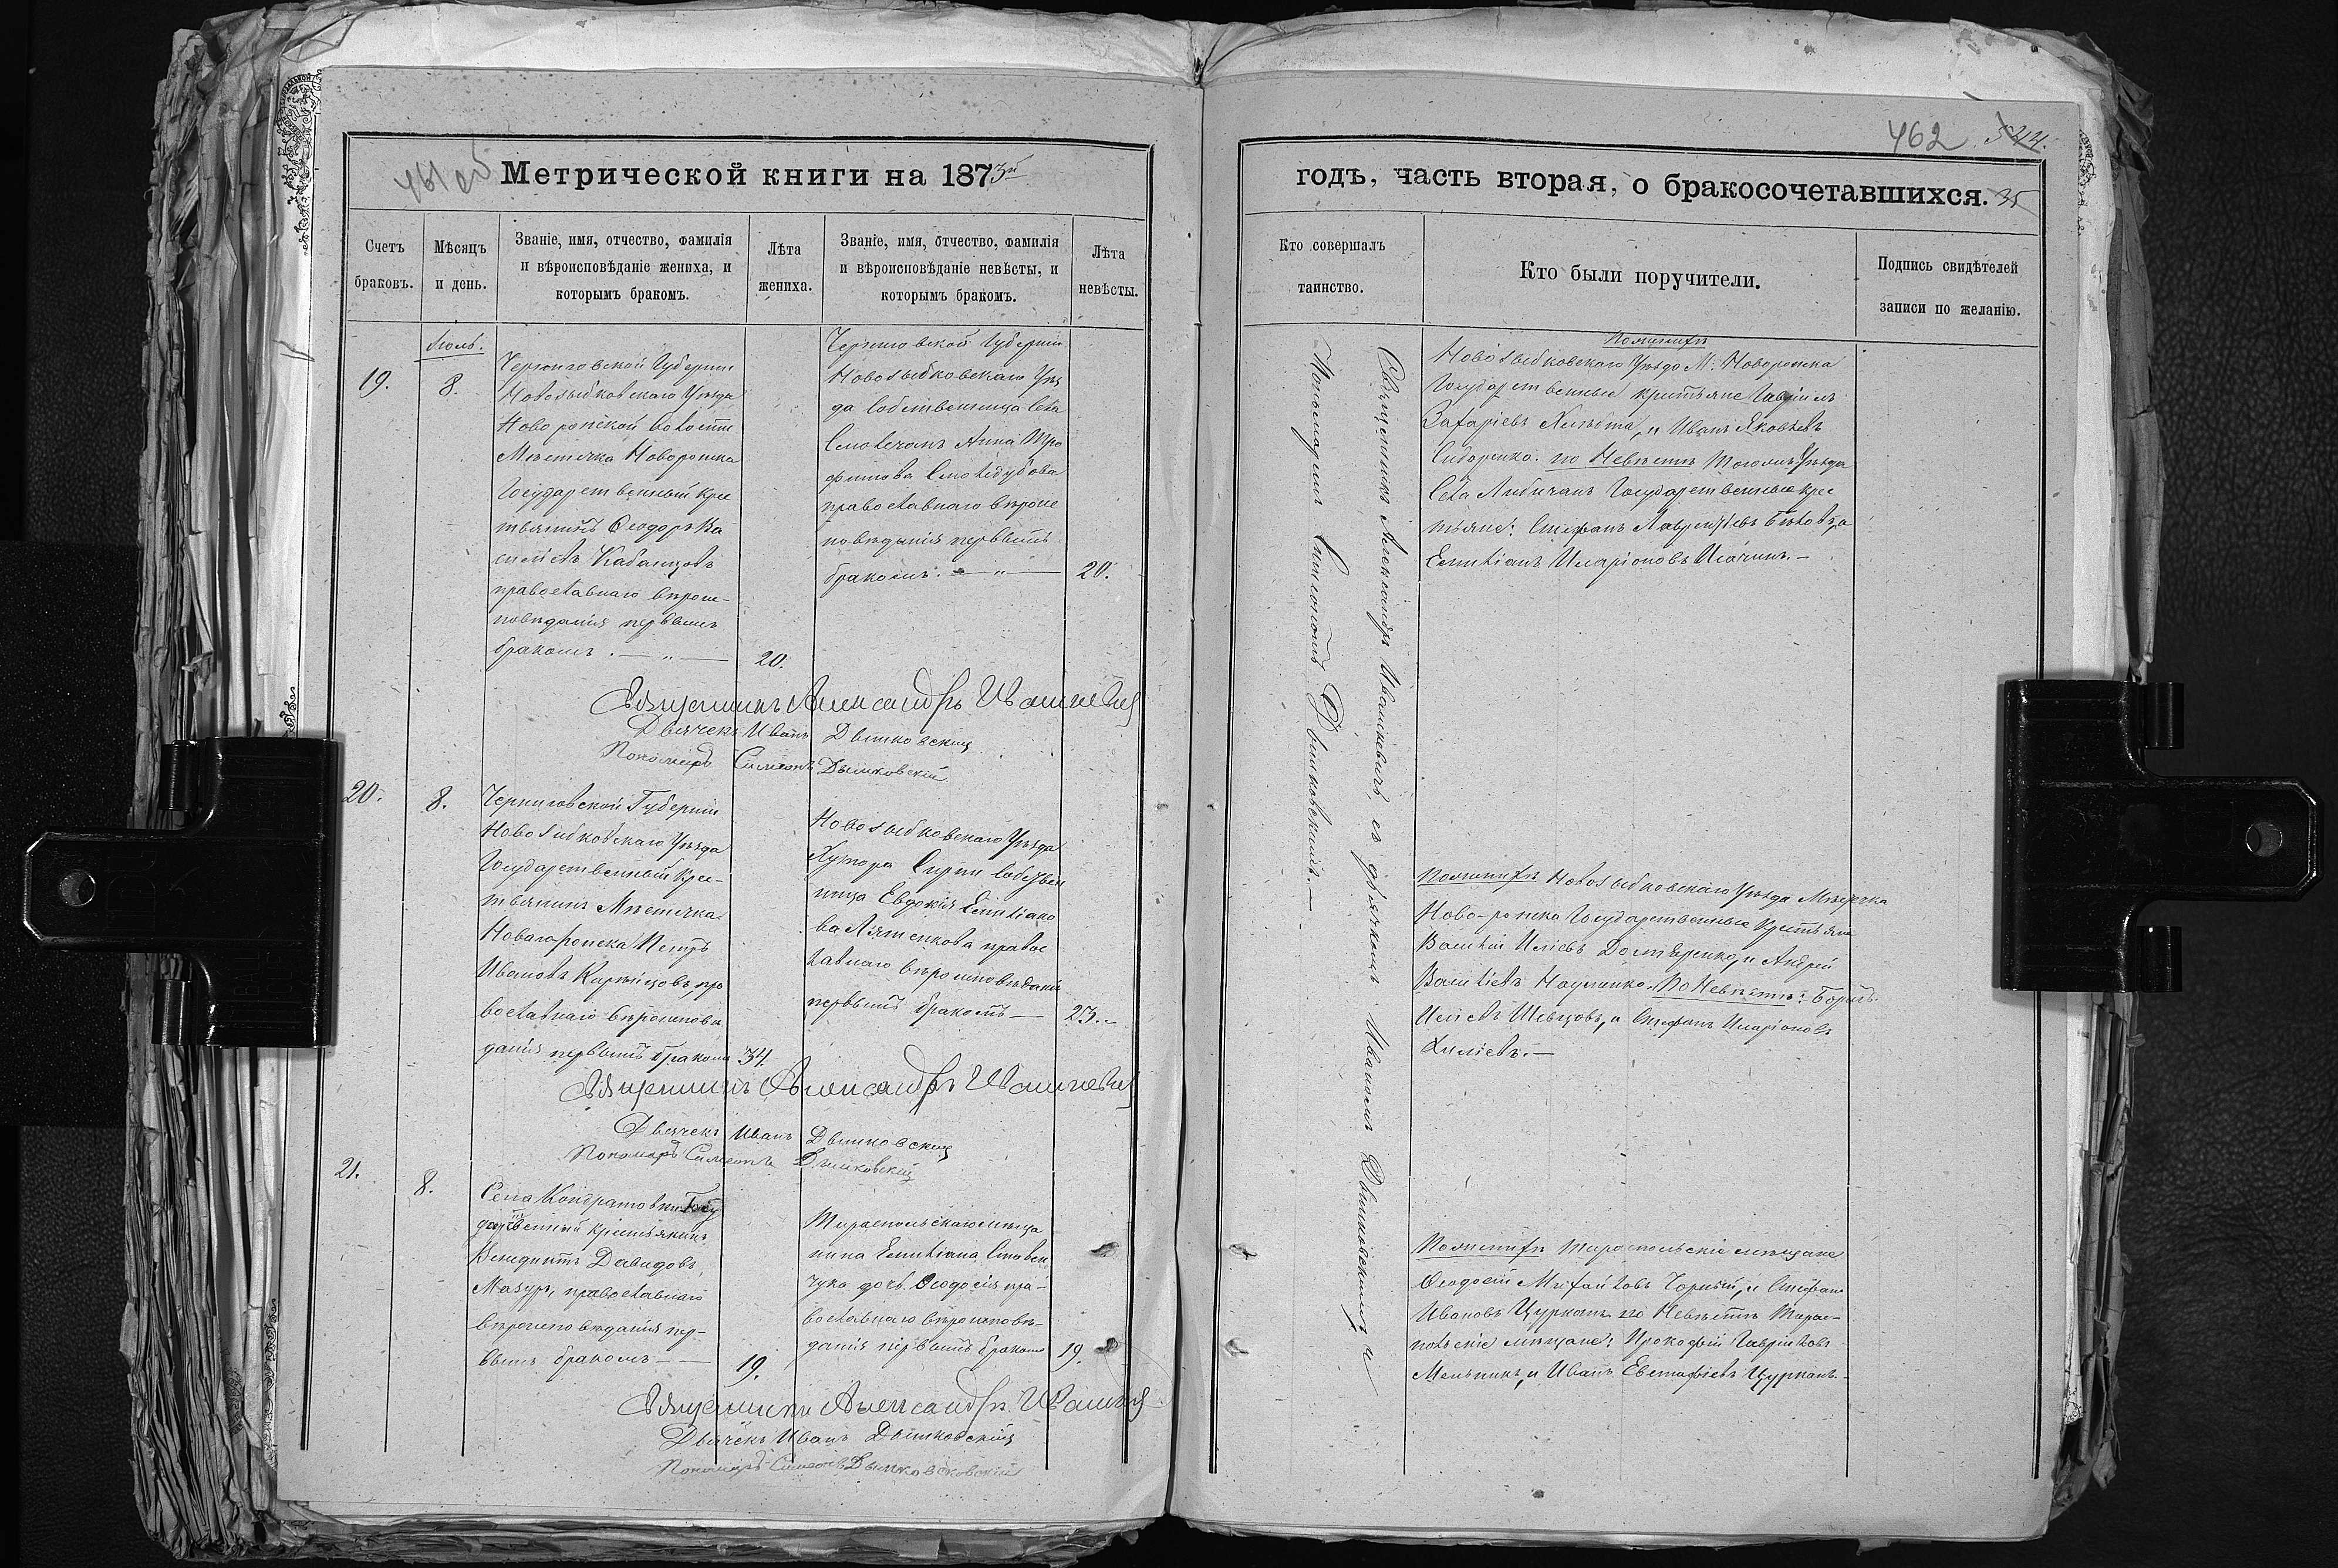 Метрической книги на 1873й
Счетъ браковъ.
Мѣсяцъ и день.
Званіе, имя, отчество, фамилія
и вѣроисповѣданіе жениха, и
которымъ бракомъ.
Лѣта жениха.
Званіе, имя, отчество, фамилія
и вѣроисповѣданіе невѣсты, и
которымъ бракомъ.
Лѣта невѣсты.
Іюль.
19.
8.
Черниговской Губерніи
Новозыбковскаго Уѣзда
Новоропской Волости
Мѣстечка Новоропска
Государственный Крес
тьянинъ Ѳеодоръ Ва
силіевъ Кабанцовъ
православнаго вѣроис-
повѣданія первымъ
бракомъ. — „ —
20.
Черниговской Губерніи
Новозыбковскаго Уѣз
да Собственница Села
Анна Тро
фимова
православнаго вѣроис
повѣданія первымъ
бракомъ. — „ —
20.
Священникъ Александръ Ивашкевич
Дьячекъ Иванъ Дымковскій
Пономарь Симеонъ Дымковскій
20.
8.
Черниговской Губерніи
Новозыбковскаго Уѣзда
Государственный Крес-
тьянинъ Мѣстечка
Новаго-ропска Петръ
Ивановъ пра
вославнаго вѣроисповѣ
данія первымъ бракомъ
34.
Новозыбковскаго Уѣзда
Хутора собствен
ница Евдокія Емиліано
ва правос
лавнаго вѣроисповѣданія
первымъ бракомъ —
23.-
Священникъ Александръ Ивашкевич
Дьячекъ Иванъ Дымковскій
Пономарь Симеонъ Дымковскій
21.
8.
Села Кондратовки Госу
дарственный крестьянинъ
Венидиктъ Давидовъ
Мазуръ, православнаго
вѣроисповѣданія пер-
вымъ бракомъ —
19.
Тираспольскаго мѣща
нина Емиліана
чука дочь Ѳеодосія пра-
вославнаго вѣроисповѣ-
данія первымъ бракомъ
19.
Священникъ Александръ Ивашкевич
Дьячекъ Иванъ Дымковскій
Пономарь Симеонъ
462
годъ, часть вторая, о бракосочетавшихся.
35
Кто совершалъ таинство.
Кто были поручители.
Подпись свидѣтелей записи по желанію.
Священникъ Александръ Ивашкевичъ, съ дьячкомъ Иваномъ Дымковскимъ, и
Пономаремъ Симеономъ Дымковскимъ. —
По женихѣ
Новозыбковскаго Уѣзда М. Новоропска
Государственные крестьяне Гавріилъ
Захаріевъ и Иванъ Яковлевъ
Сидоренко. по Невѣстѣ Того же Уѣзда
Села Государственные крес
тьяне: Стефанъ Лаврентіевъ
Емиліанъ Иларіоновъ —
По женихѣ Новозыбковскаго Уѣзда Мѣстечка
Ново-ропска Государственные Крестьяне
Василій Иліевъ и Андрей
Василіевъ Науменко. По Невѣстѣ: Борисъ
Иліевъ Шевцовъ, и Стефанъ Иларіоновъ
По женихѣ Тираспольскіе мѣщане
Ѳеодосій Михайловъ Чорный, и Стефанъ
Ивановъ Цурканъ по Невѣстѣ Тирас-
польскіе мѣщане: Прокофій Гавріиловъ
Мельникъ, и Иванъ Евстафіевъ Цурканъ.